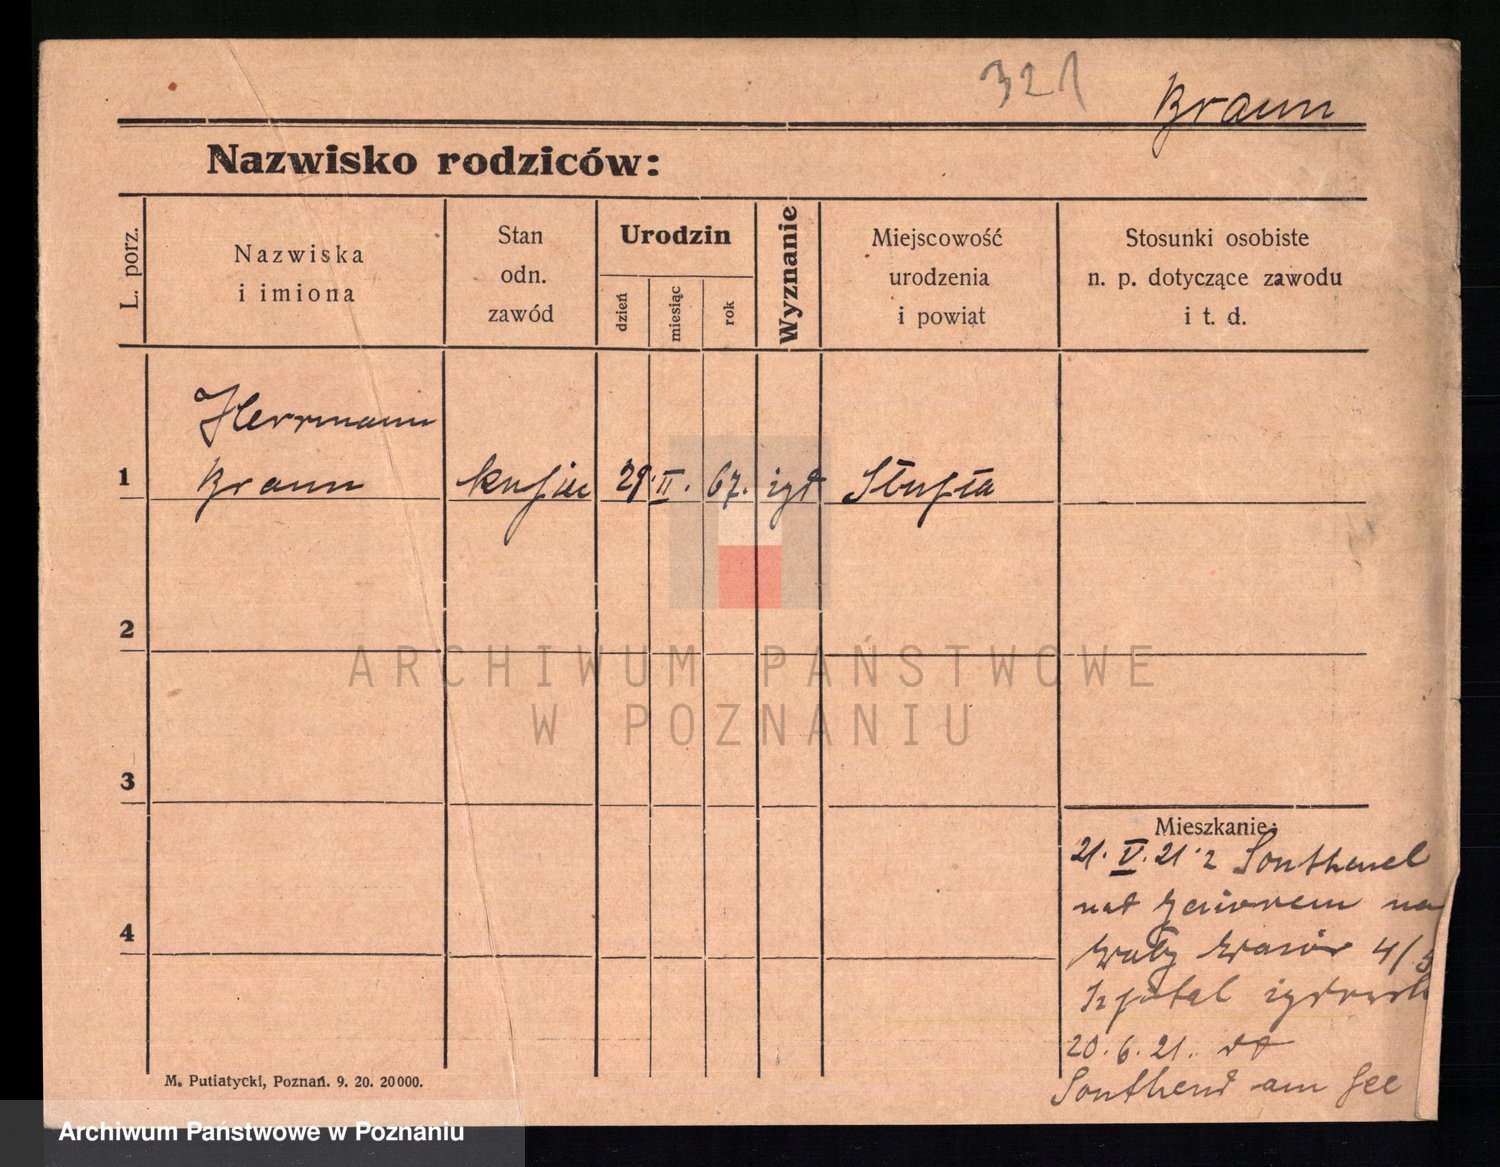 321
Braun
Nazwisko rodziców:
L. porz.
Nazwiska
i imiona
Stan
odn.
zawód
Urodzin
dzień
miesiąc
rok
Wyznanie
Miejscowość
urodzenia
i powiat
Stosunki osobiste
n. p. dotyczące zawodu
i t. d.
Herrmann
1 Braun kupiec 29. II. 67. żyd Słupia
2
3
4
Mieszkanie:
21. V. 21. z Southend
nad na
Wały 4/5
Szpital żydowsk
20. 6. 21. do
Southend am See
M. Putiatycki, Poznań. 9. 20. 20000.
ARCHIWUM PAŃSTWOWE
W POZNANIU
Archiwum Państwowe w Poznaniu